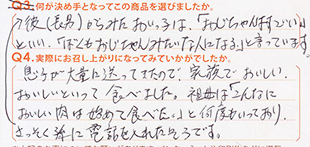 Q3. 何が決め手となってこの商品を選びましたか。
今後(長男)からみたおいっ子は、「おじちゃんすごい」
といい、「ぼくもおじちゃんみたいなんになる」と言っています。
Q4. 実際にお召し上がりになってみていかがでしたか。
息子が大量に送ってきたので、家族でおいしい
おいしいといって食べました。祖母は「こんなに
おいしい肉は始めて食べた。」と何度もいっており、
さっそく弟に電話を入れたそうです。